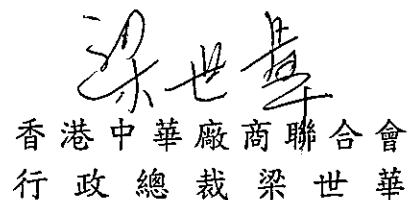 梁世華
香港中華廠商聯合會
行政總裁梁世華